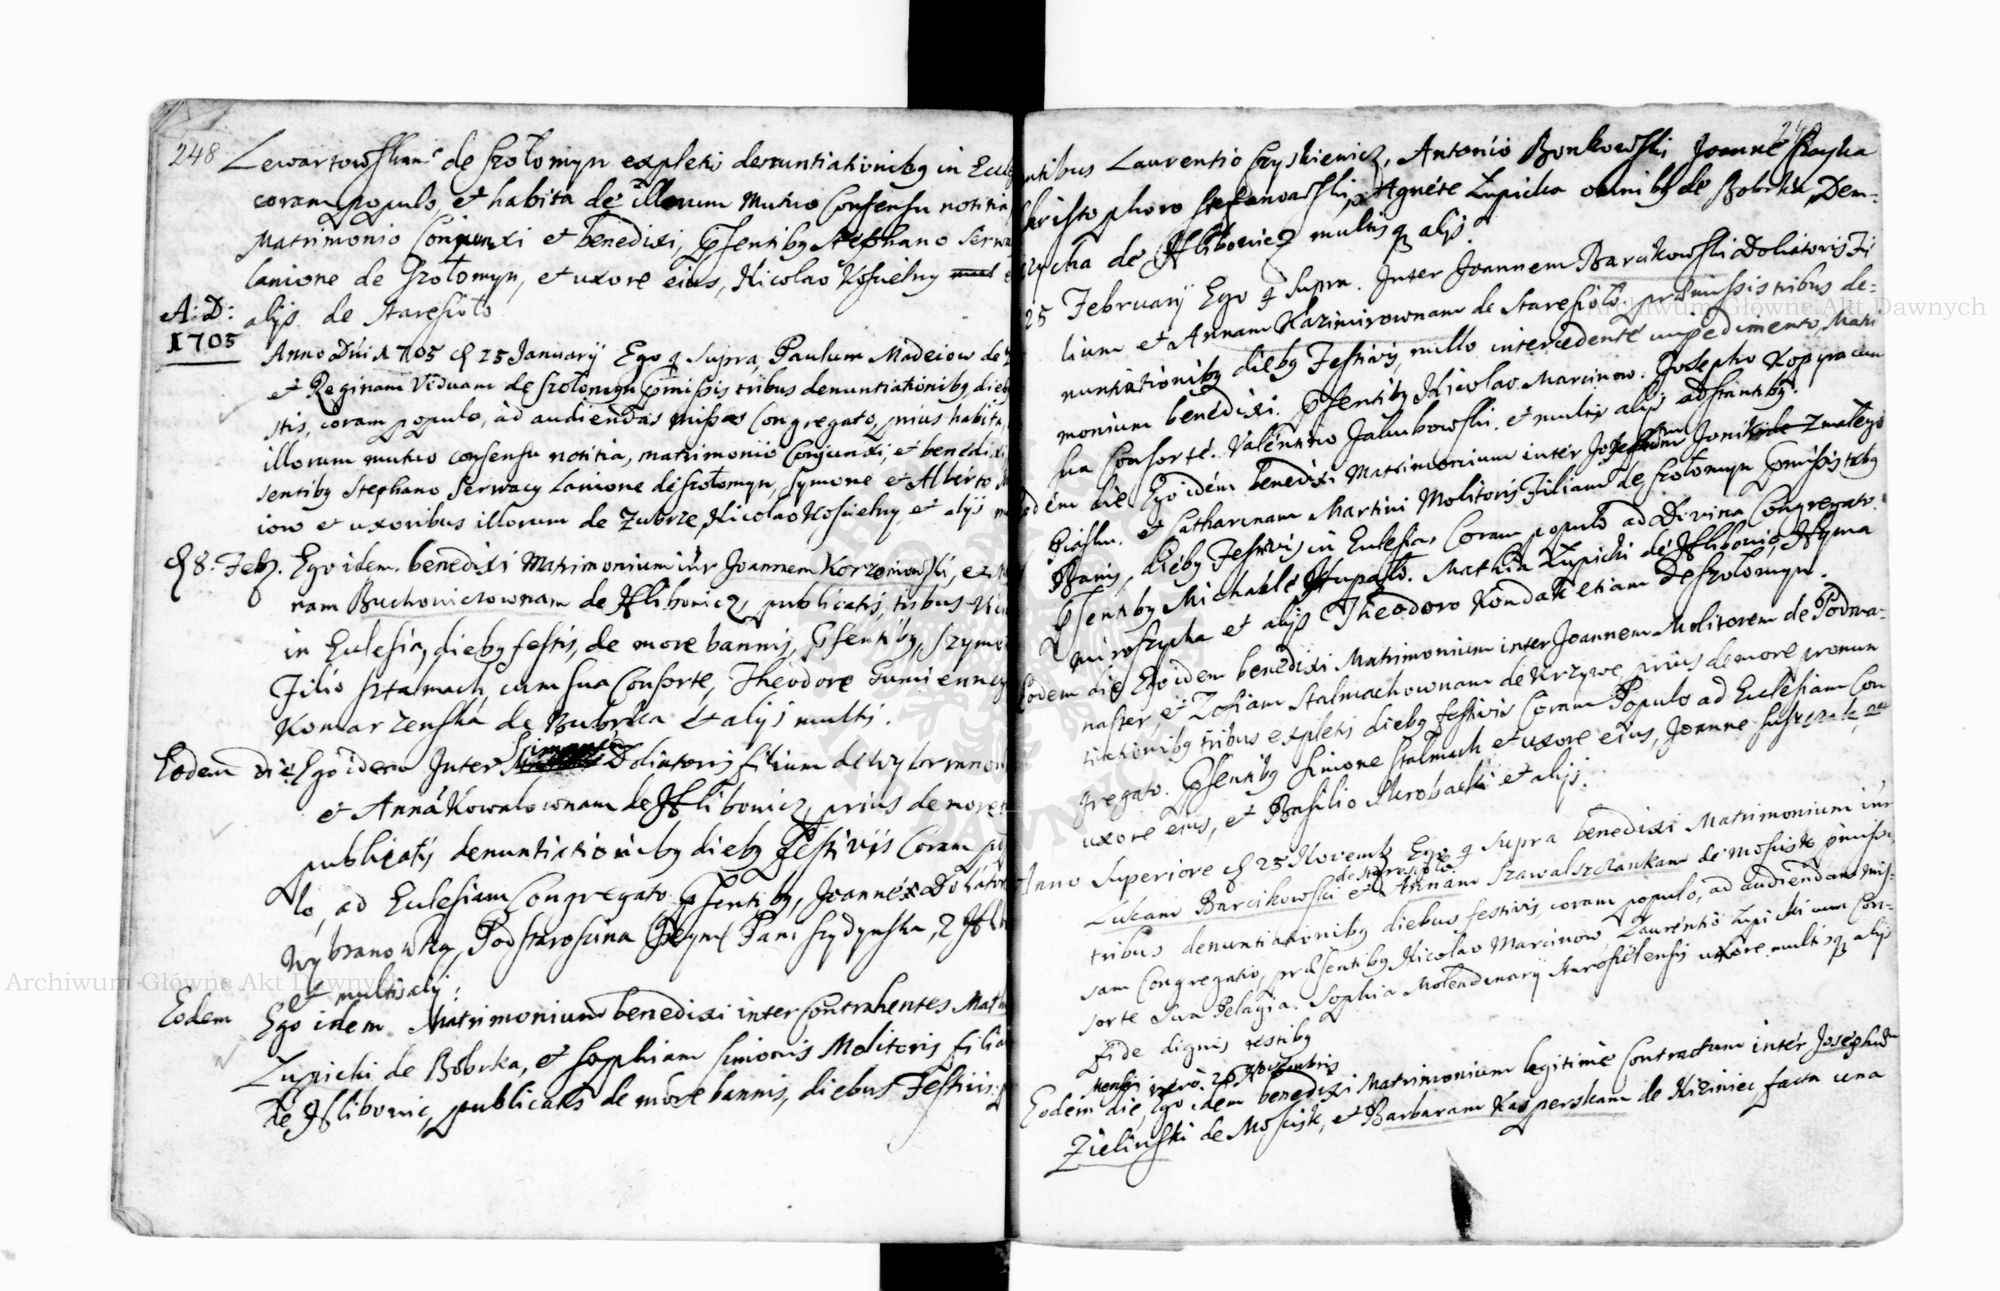 248
Lewartowskam de Szołomyn expletis denuntiationiby in Eccle
coram populo, et habita de illorum mutuo Consensu notitia,
Matrimonio Coniunxi et benedixi, Psentiby Stephano Serwa
lanione de Szołomyn, et uxore eius, Nicolao Kościelny
alijs de Staresioło
A: D:
1705
Anno Dni 1705 d 25 January Ego q Supra, Paulum Madeiow de
et Reginam Viduam de Szołomyn pmissis tribus denuntiationiby, dieby
stis, coram populo, ad audiendas missas Congregato, prius habita,
illorum mutuo consensu notitia, matrimonio Coniunxi, et benedixi
sentiby Stephano Serwacy Lanione de Szołomyn, Symone et Alberto
iow et uxoribus illorum de Zubrze, Nicolao Kościelny, et alijs
d 8. Feb. Ego idem benedixi Matrimonium intr Joannem Korzeniowski, et
nam Buchowiczownam de Hlibowicz, publicatis, tribus
in Eclesia, dieby festis, de more bannis, Psentiby, Szymo
Filio Sztamach, cum sua Consorte, Theodore Gumienny
Komarzenska de Bubrka et alijs multis.
Eodem die Ego idem Inter Simone Doliatoris filium de Wybranow
et Anna Kowalownam de Hlibowicz, prius de more
publicatis denuntiationiby dieby Festivis Coram
lo, ad Eclesiam Congregato Psentiby, Joannes Doliatore
Wybranowky, Podstaroscina Pani Szydynska, z
et multis alijs
Eodem Ego idem Matrimonium benedixi inter Contrahentes Math
Zupicki de Bobrka, et Sophiam Simonis Molitoris filia
de Hlibowic, publicatis de more bannis, diebus Festivis
ntibus Laurentio Czyskiewicz, Antonio Bonkowski Joanne
Christophoro Stefanowski, Agnete Zupicka omniby de Bobrka, Dem-
de Hlibowicz multisq alijs
25 February Ego q Supra. Inter Joannem Barcikowski Doliatoris Fi
lium et Annam Kazimirownam de Staresioło, præmissis tribus de-
nuntiationiby dieby Festivis, nullo intercedente impedimento, Matri
monium benedixi. Psentiby Nicolao Marcinow. Josepho Kopyra cum
sua Consorte. Valentino Jakubowski. et multis alijs adstantiby.
Eodem die Ego idem benedixi Matrimonium inter Josephum
et Catharinam Martini Molitoris Filiam de Szołomyn Pmissis triby
Banis, dieby Festivis in Eclesia, Coram populo ad Divina Congregato.
Psentiby Michaele Hupało. Mathia Zupicki de Hlibowic,
et alijs Theodoro Kondak etiam de Szołomyn.
Eodem die Ego idem benedixi Matrimonium inter Joannem Molitorem de Podma-
naster, et Zofiam Stalmachownam de Krzywe, prius de more pronun
tiationiby tribus expletis dieby festivis Coram Populo ad Eclesiam Con
gregato. Psentiby Simone Stalmach et uxore eius, Joanne
uxore eius, et Basilio Skrobacki et alijs.
Anno Superiore d 25 Novemb. Ego q Supra benedixi Matrimonium intr
de Staresioło
Lukam Barcikowski et Annam Szawalszczankam de Moscisk pmissis
tribus denuntiationiby diebus festivis, coram populo, ad audiendam mis-
sam Congregatio, præsentiby Nicolao Marcinow, Laurentio Zupicki cum Con-
sorte sua Pelagia. Sophia Molendinary Staresiolensis uxore multisq alijs
fide dignis testiby
Mensis vero 26 Novembris
Eodem die, Ego idem benedixi Matrimonium legitime Contractum inter Josephum
Zielinski de Mościsk, et Barbaram Kasperskam de Niziniec facta una